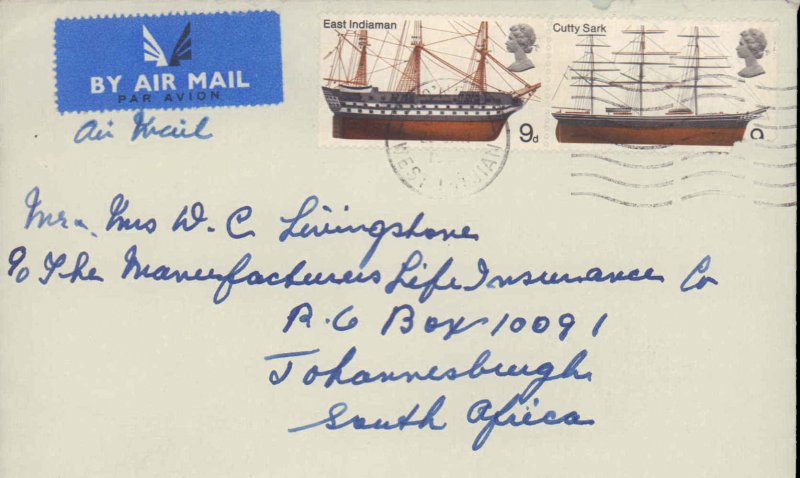 BY AIR MAIL
PAR AVION
Air Mail
East Indiaman
9d
Cutty Sark
9
WEST INDIAN
Mr & Mrs D. C. Livingstone
c/o The Manufacturers Life Insurance Co
P.O Box 10091
Johannesburgh
South Africa